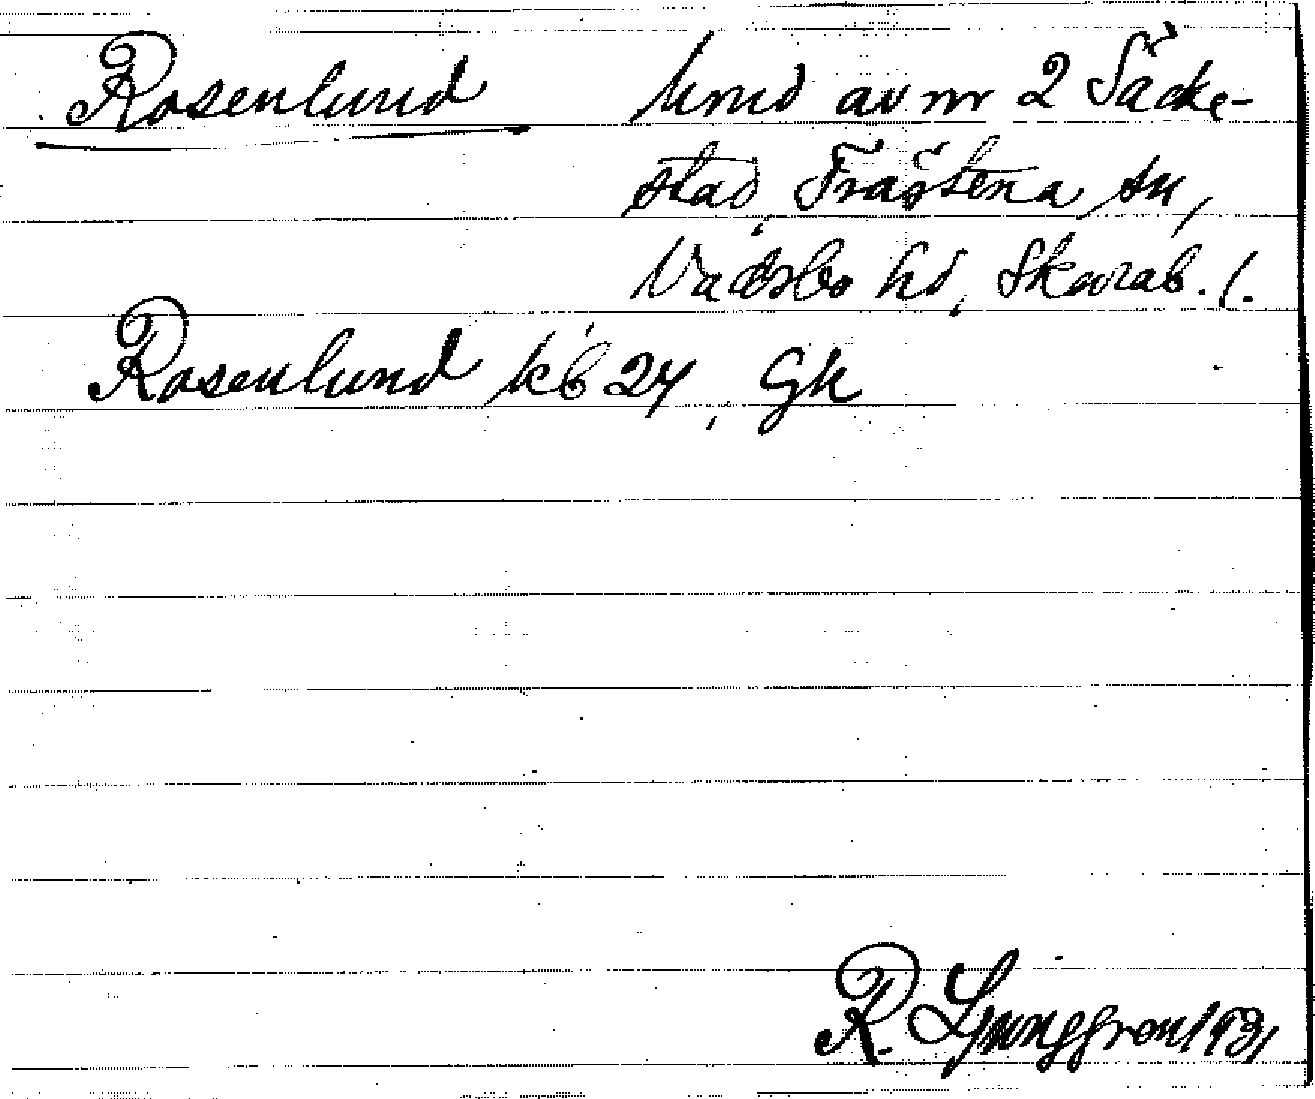 Rosenlund lund av nr 2 Säcke-
stad, Fräštena sn,
Vadsbo hd, Skarab. l.
Rosenlund kb 24, Gk
R. Ljunggren 1931